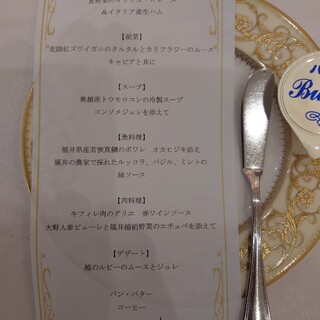 &イタリア産生ハム
【前菜】
北陸紅ズワイガニのタルタルとカリフラワーのムース
キャビアと共に
【スープ】
奥越産トウモロコシの冷製スープ
コンソメジュレを添えて
【魚料理】
福井県産若狭真鯛のポワレ　オカヒジキ添え
福井の農家で採れたルッコラ、バジル、ミントの
緑ソース
【肉料理】
牛フィレ肉のグリエ　赤ワインソース
大野人参ピューレと福井越前野菜のエチュベを添えて
【デザート】
越のルビーのムースとジュレ
パン・バター
コーヒー
Bu